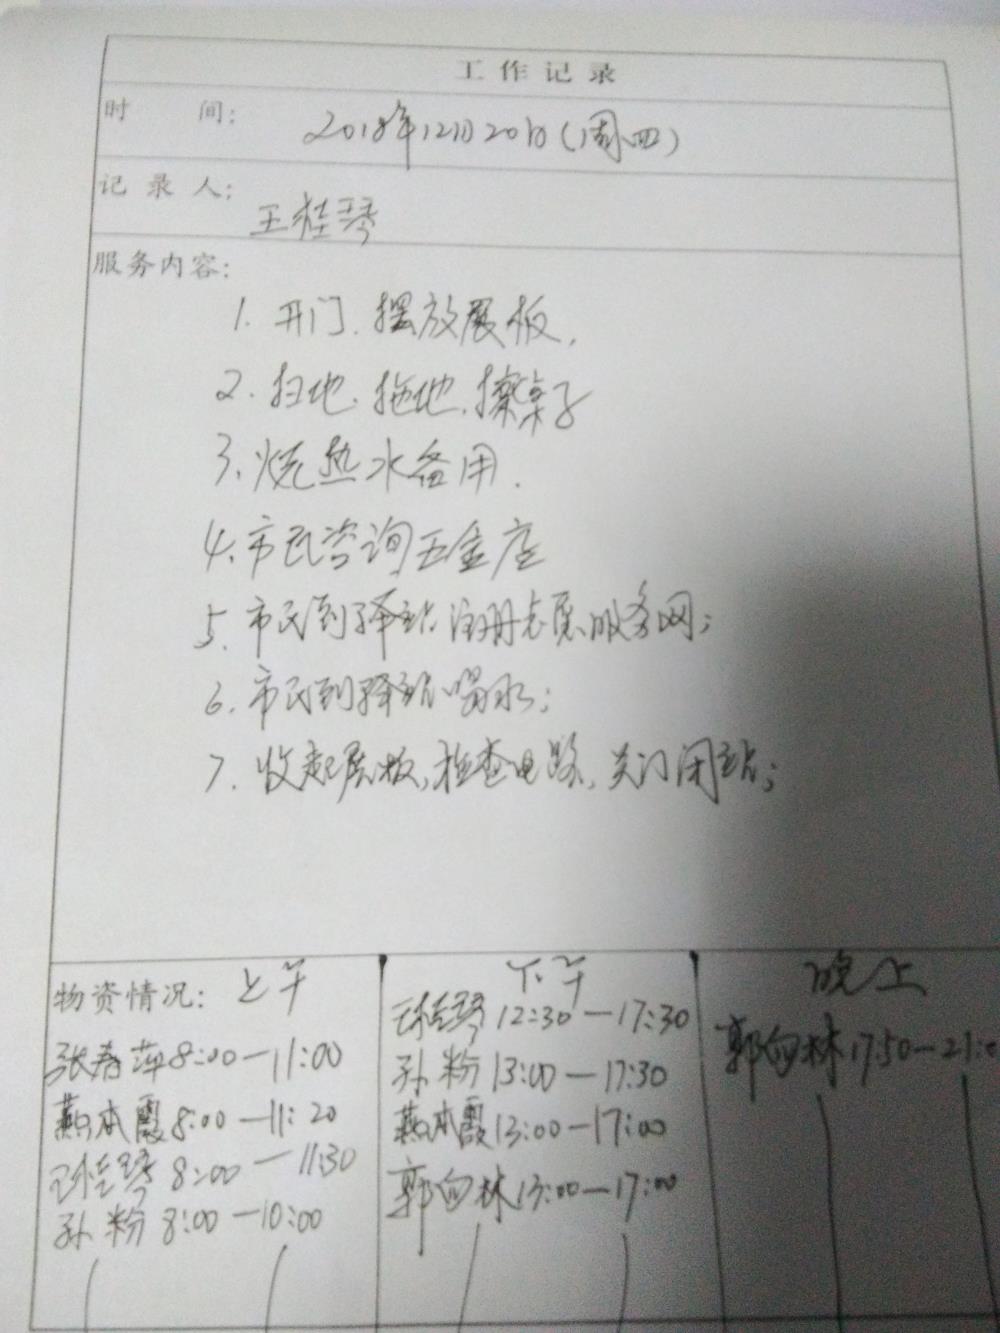 工作记录
时 间: 2018年12月20日(周四)
记录人: 王桂琴
服务内容:
1. 开门、摆放展板.
2. 扫地、拖地、擦桌子
3. 烧热水备用.
4. 市民咨询五金店
5. 市民到驿站注册志愿服务网;
6. 市民到驿站喝水;
7. 收起展板,检查电路,关门闭站;
物资情况: 上午
张春萍 8:00—11:00
燕本霞 8:00—11:20
王桂琴 8:00—11:30
孙粉 8:00—10:00
下午
王桂琴 12:30—17:30
孙粉 13:00—17:30
燕本霞 13:00—17:00
郭向林 13:00—17:00
晚上
郭向林 17:50—21:0